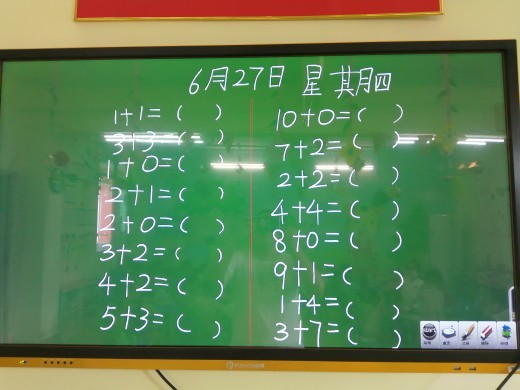 6月27日 星期四
1+1=( )
3+3=( )
1+0=( )
2+1=( )
2+0=( )
3+2=( )
4+2=( )
5+3=( )
10+0=( )
7+2=( )
2+2=( )
4+4=( )
8+0=( )
9+1=( )
1+4=( )
3+7=( )